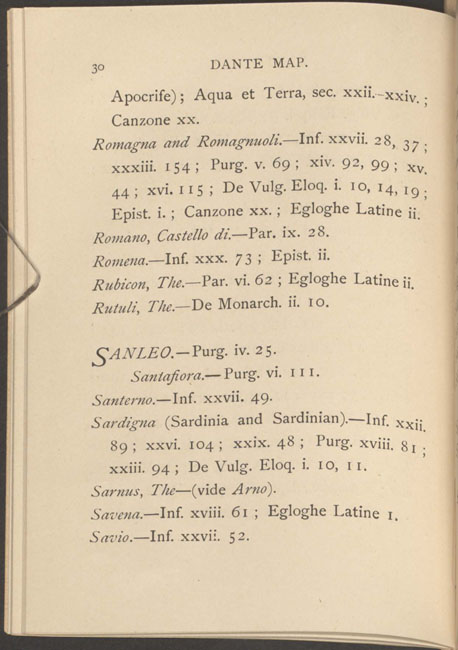 30 DANTE MAP.
Apocrife); Aqua et Terra, sec. xxii.–xxiv.;
Canzone xx.
Romagna and Romagnuoli.—Inf. xxvii. 28, 37;
xxxiii. 154; Purg. v. 69; xiv. 92, 99; xv.
44; xvi. 115; De Vulg. Eloq. i. 10, 14, 19;
Epist. i.; Canzone xx.; Egloghe Latine ii.
Romano, Castello di.—Par. ix. 28.
Romena.—Inf. xxx. 73; Epist. ii.
Rubicon, The.—Par. vi. 62; Egloghe Latine ii.
Rutuli, The.—De Monarch. ii. 10.
SANLEO.—Purg. iv. 25.
Santafiora.—Purg. vi. 111.
Santerno.—Inf. xxvii. 49.
Sardigna (Sardinia and Sardinian).—Inf. xxii.
89; xxvi. 104; xxix. 48; Purg. xviii. 81;
xxiii. 94; De Vulg. Eloq. i. 10, 11.
Sarnus, The—(vide Arno).
Savena.—Inf. xviii. 61; Egloghe Latine 1.
Savio.—Inf. xxvii. 52.